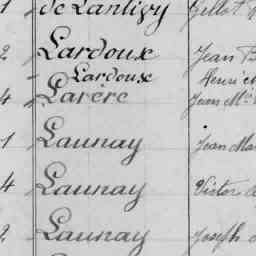 1 de Lantivy
2 Lardoux Jean
Lardoux Henri
4 Larère Jean M.
1 Launay Jean Mar
4 Launay Victor
2 Launay Joseph